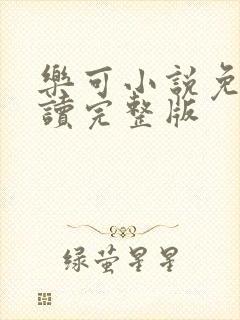 樂可小說免
讀完整版
绿萤星星